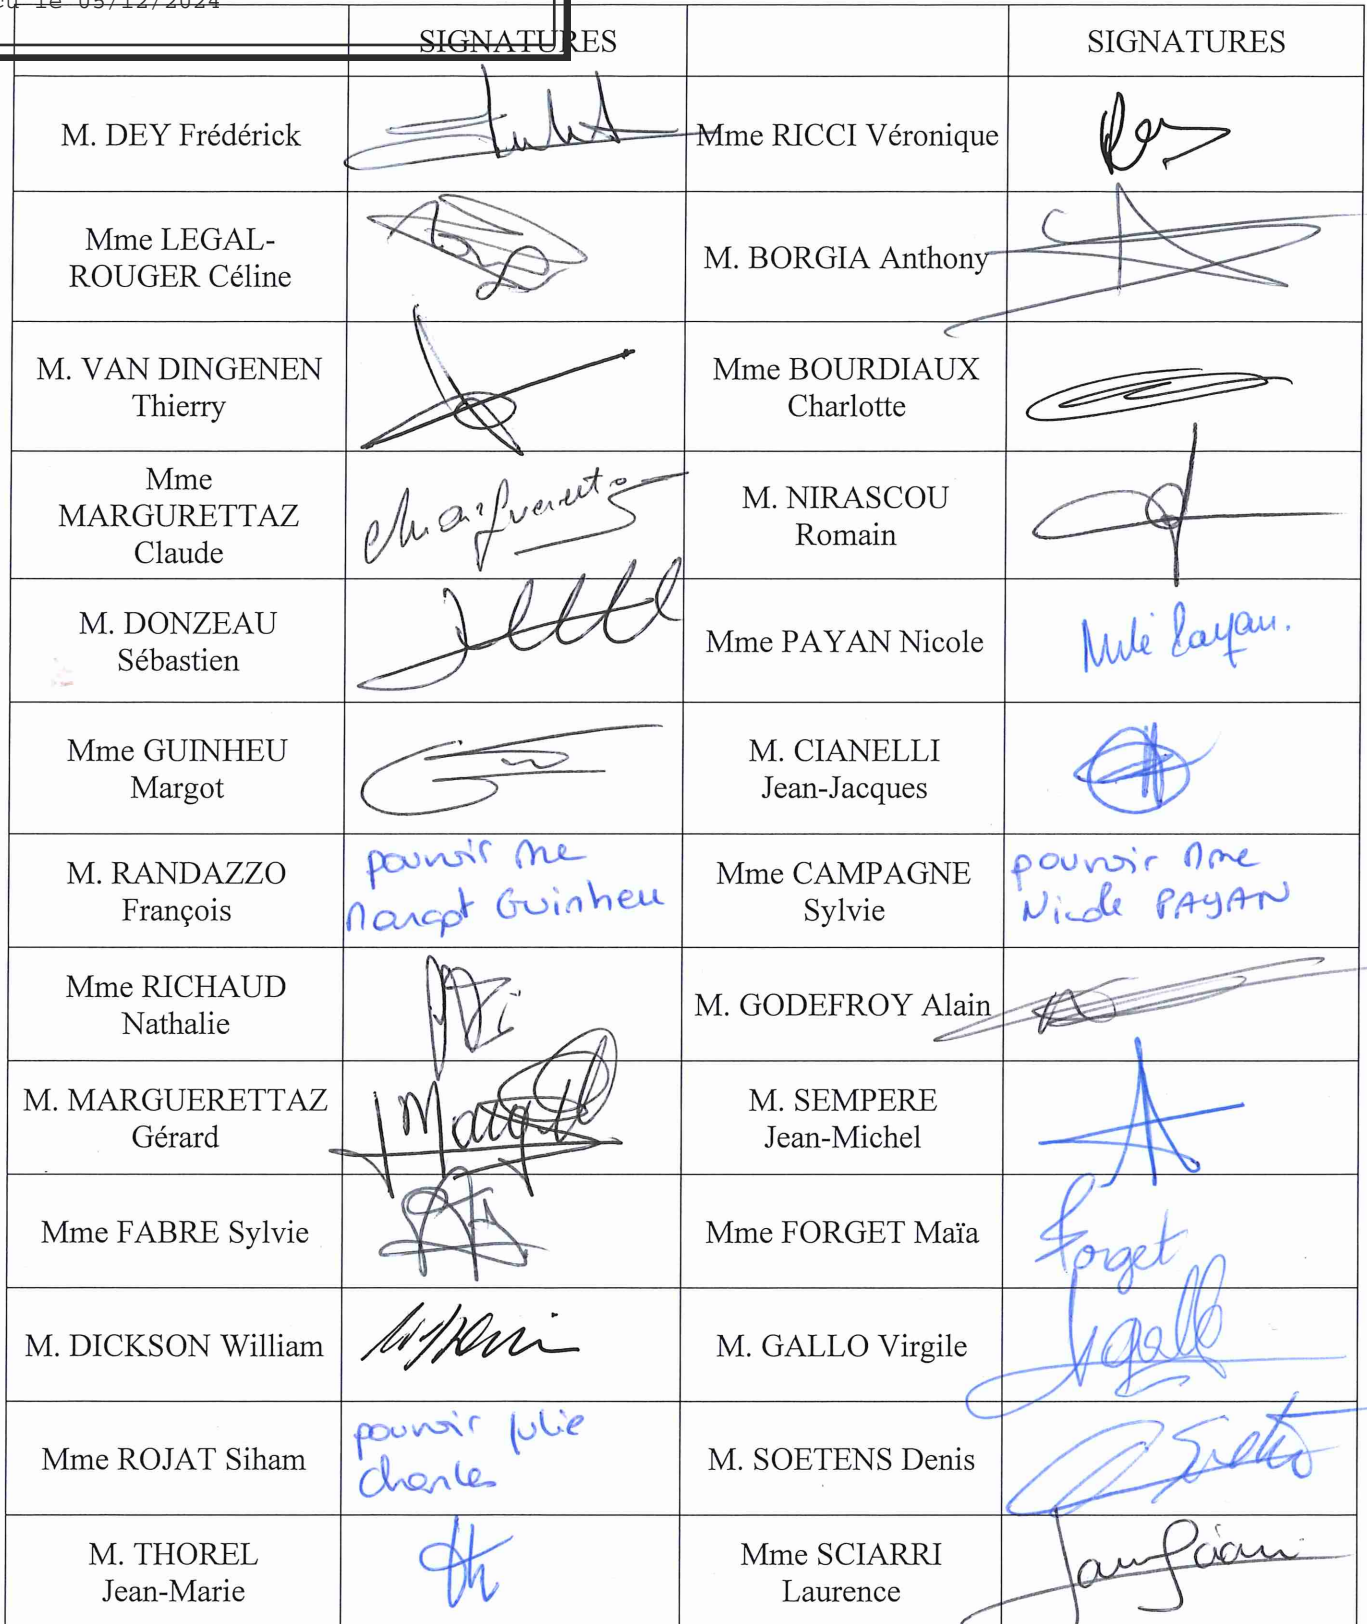 le 05/12/2024
SIGNATURES SIGNATURES
M. DEY Frédérick
Mme RICCI Véronique
Mme LEGAL-
ROUGER Céline
M. BORGIA Anthony
M. VAN DINGENEN
Thierry
Mme BOURDIAUX
Charlotte
Mme
MARGURETTAZ
Claude
M. NIRASCOU
Romain
M. DONZEAU
Sébastien
Mme PAYAN Nicole
Mme GUINHEU
Margot
M. CIANELLI
Jean-Jacques
M. RANDAZZO
François
pouvoir Mme
Margot Guinheu
Mme CAMPAGNE
Sylvie
pouvoir Mme
Nicole PAYAN
Mme RICHAUD
Nathalie
M. GODEFROY Alain
M. MARGUERETTAZ
Gérard
M. SEMPERE
Jean-Michel
Mme FABRE Sylvie
Mme FORGET Maïa
Forget
M. DICKSON William
M. GALLO Virgile
Mme ROJAT Siham
pouvoir Julie
Charles
M. SOETENS Denis
M. THOREL
Jean-Marie
Mme SCIARRI
Laurence